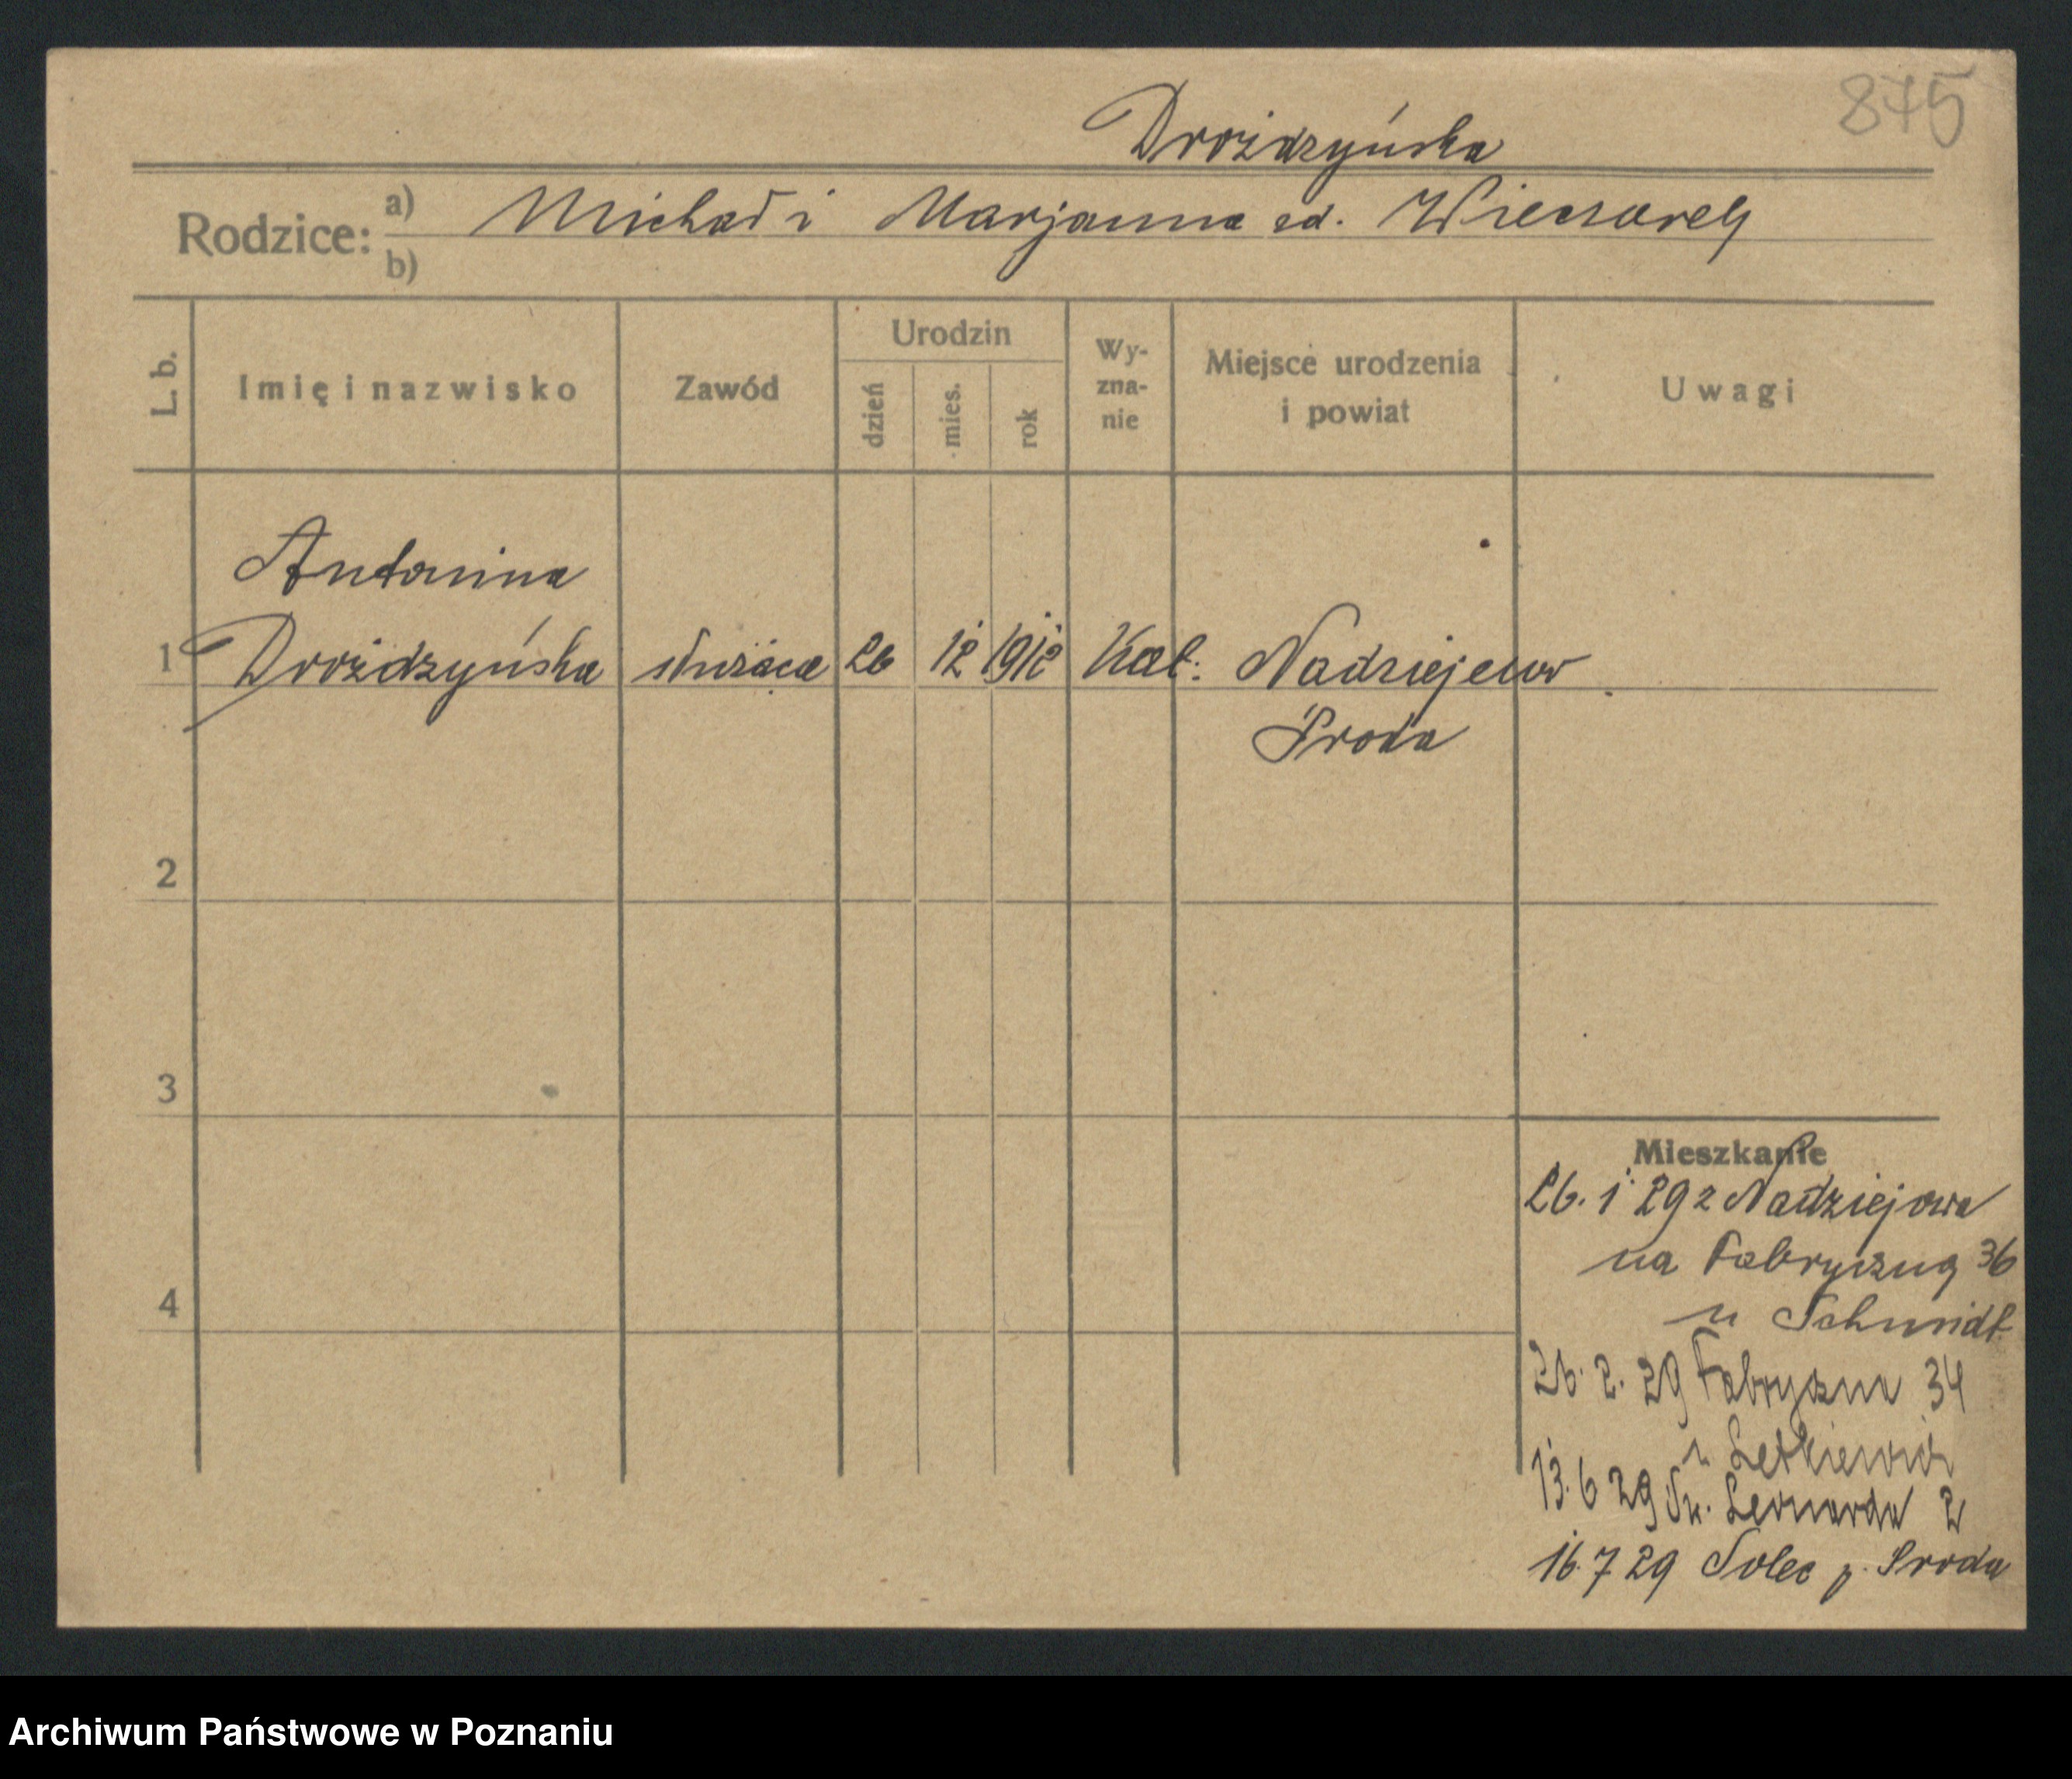 875
Drożdżyńska
Rodzice: a) Michał i Marjanna zd. Wieczorek
b)
L. b. Imię i nazwisko Zawód Urodzin dzień mies. rok Wy-zna-nie Miejsce urodzenia i powiat Uwagi
Antonina
1 Drożdżyńska służąca 26 12 1912 Kat. Nadziejewo
Środa
2
3
Mieszkanie
26. 1 29 z Nadziejewa
na Fabryczną 36
4
u Schmidt
26. 2. 29 Fabryczna 34
u
13. 6 29 Św. Leonarda 2
16. 7 29 Solec p. Środa
Archiwum Państwowe w Poznaniu